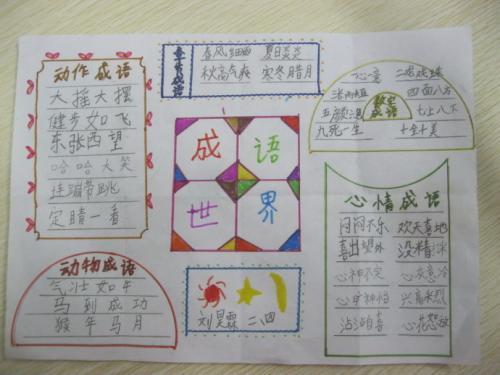 动作成语
大摇大摆
健步如飞
东张西望
哈哈大笑
连蹦带跳
定睛一看
季节成语
春风细雨 夏日炎炎
秋高气爽 寒冬腊月
数字成语
一心一意
四面八方
五颜 七上八下
九死一生 十全十美
成语
世界
动物成语
气壮如牛
马到成功
猴年马月
刘昊霖 二、四
心情成语
闷闷不乐 欢天喜地
喜出望外 没精打采
心神不定 心灰意冷
心旷神怡 兴高采烈
沾沾自喜 心花怒放